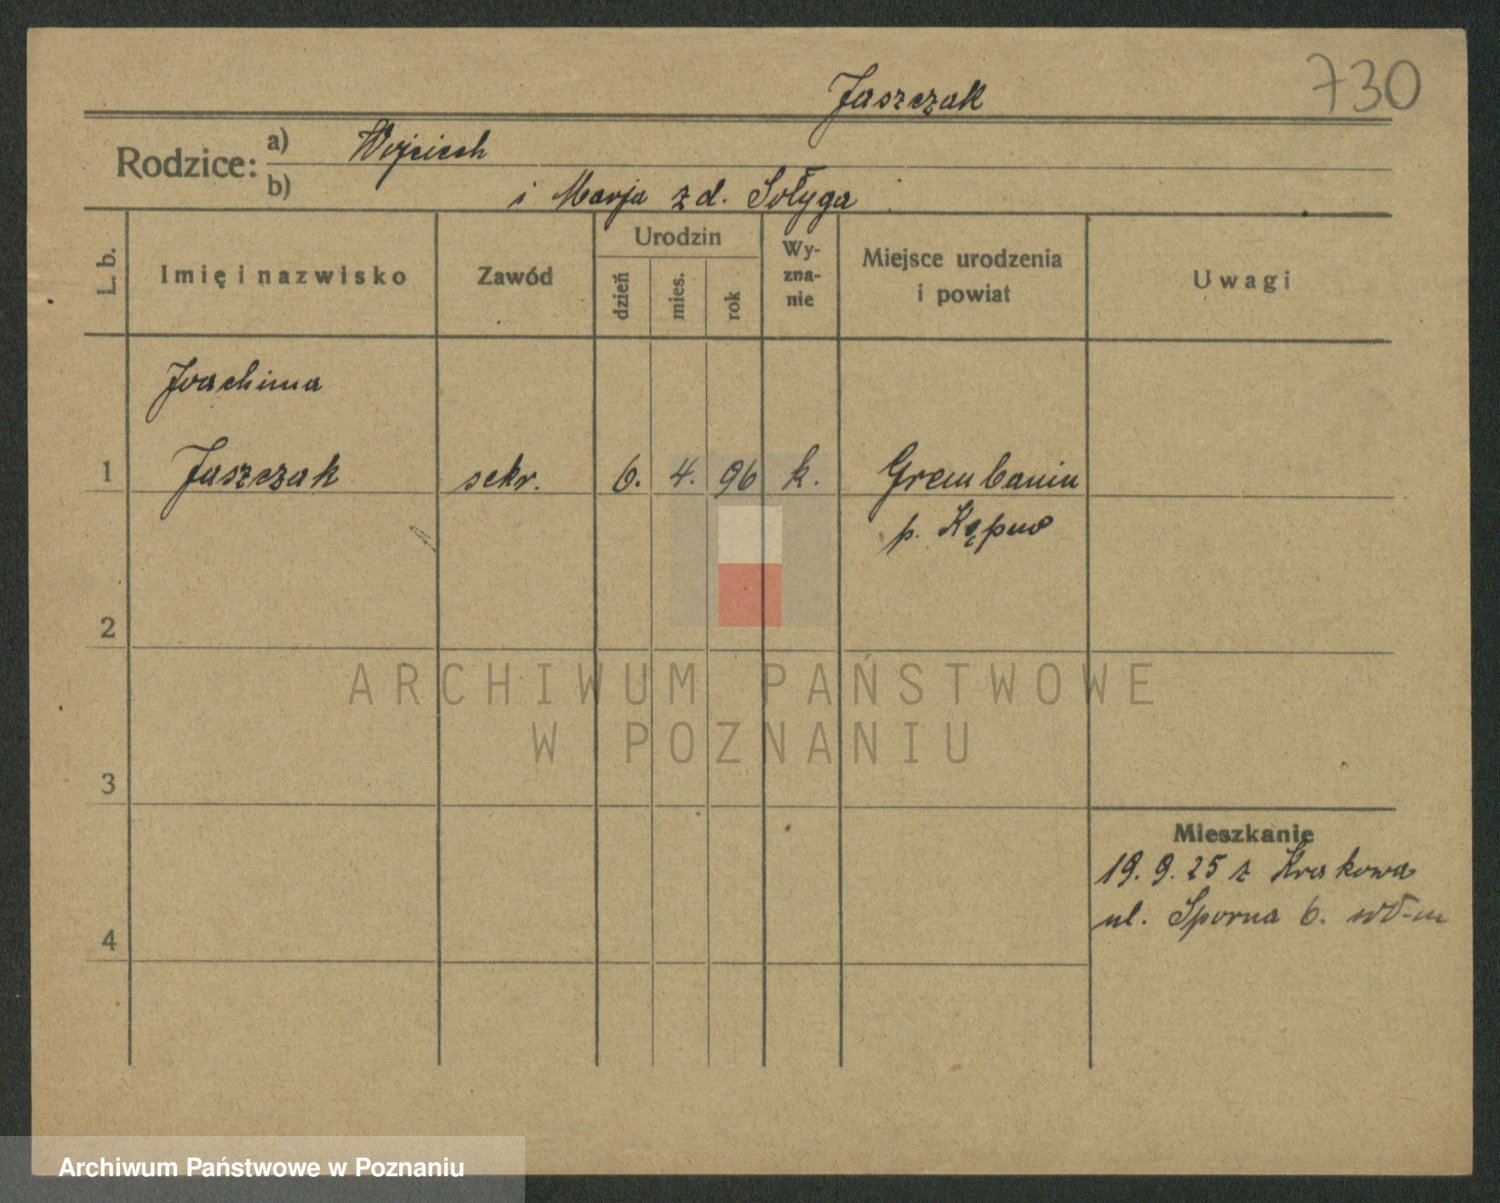 Jaszczak 730
Rodzice: a) Wojciech
b) i Marja z d. Sołyga
L. b. Imię i nazwisko Zawód Urodzin dzień mies. rok Wy-zna-nie Miejsce urodzenia i powiat Uwagi
Joachima
1 Jaszczak sekr. 6. 4. 96 k. Grembanin
p. Kępno
2
ARCHIWUM PAŃSTWOWE
W POZNANIU
3
Mieszkanie
19. 9. 25 z Krakowa
ul. Sporna 6.
4
Archiwum Państwowe w Poznaniu